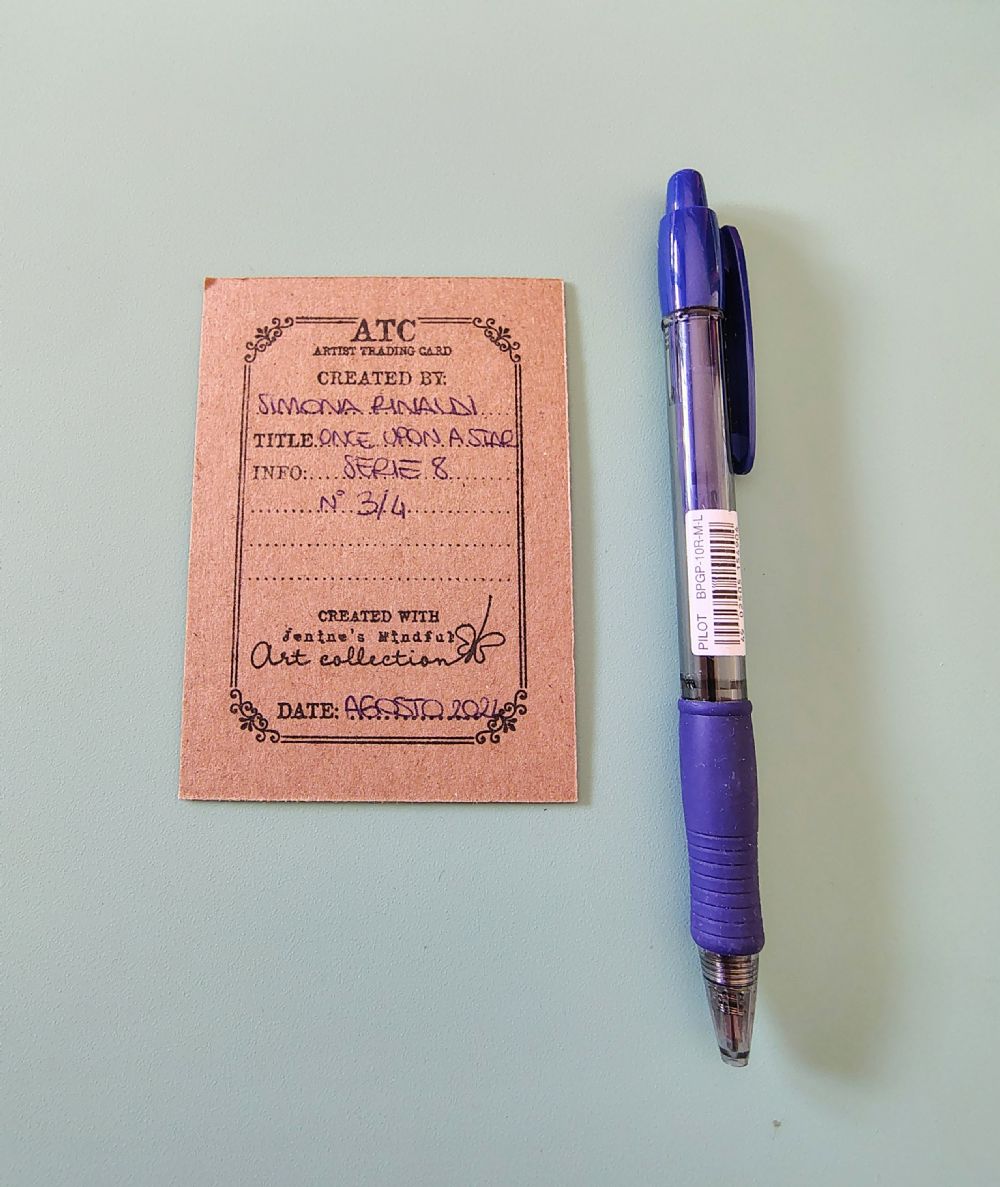 ATC
ARTIST TRADING CARD
CREATED BY:
SIMONA RINALDI
TITLE: ONCE UPON A STAR
INFO: SERIE 8
N° 3/4
CREATED WITH
Jenine's Mindful
Art collection
DATE: AGOSTO 2024
PILOT BPGP-10R-M-L